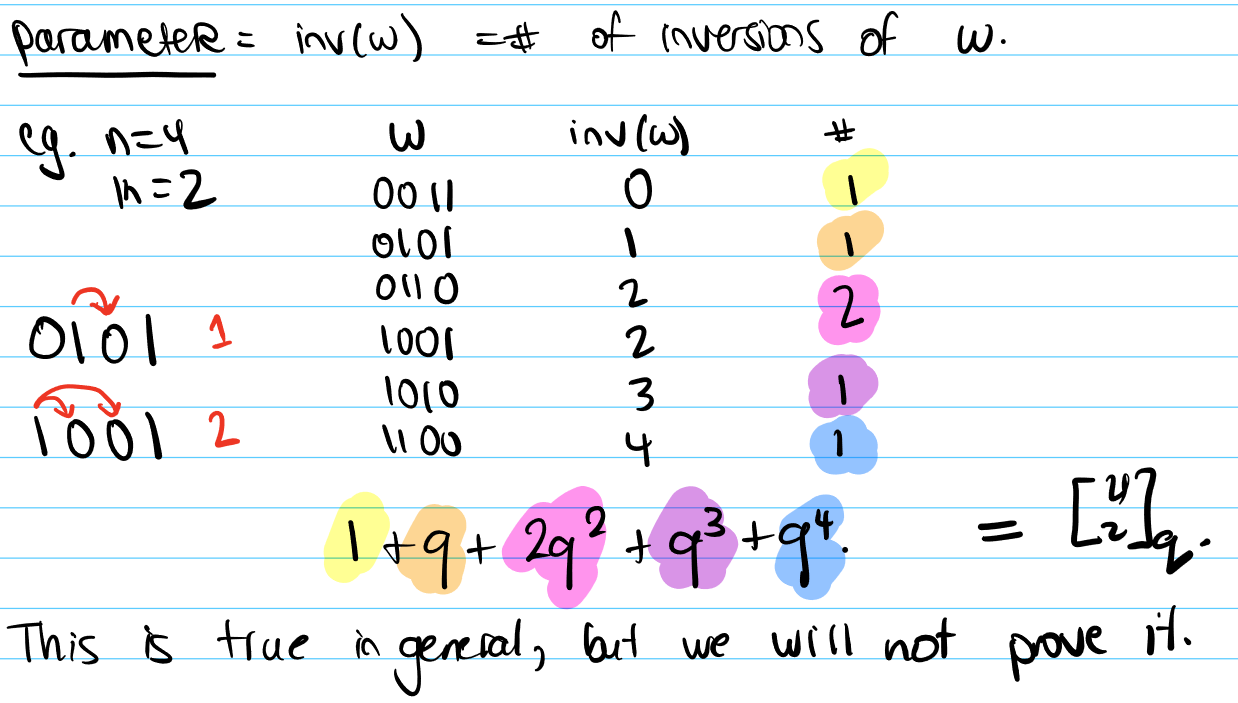 parameter = inv(w) = # of inversions of w.
eg. n=4 w inv(w) #
k=2 0011 0 1
0101 1 1
0110 2 2
0101 1 1001 2
1010 3 1
1001 2 1100 4 1
1 + q + 2q² + q³ + q⁴. = [4 2]_q.
This is true in general, but we will not prove it.